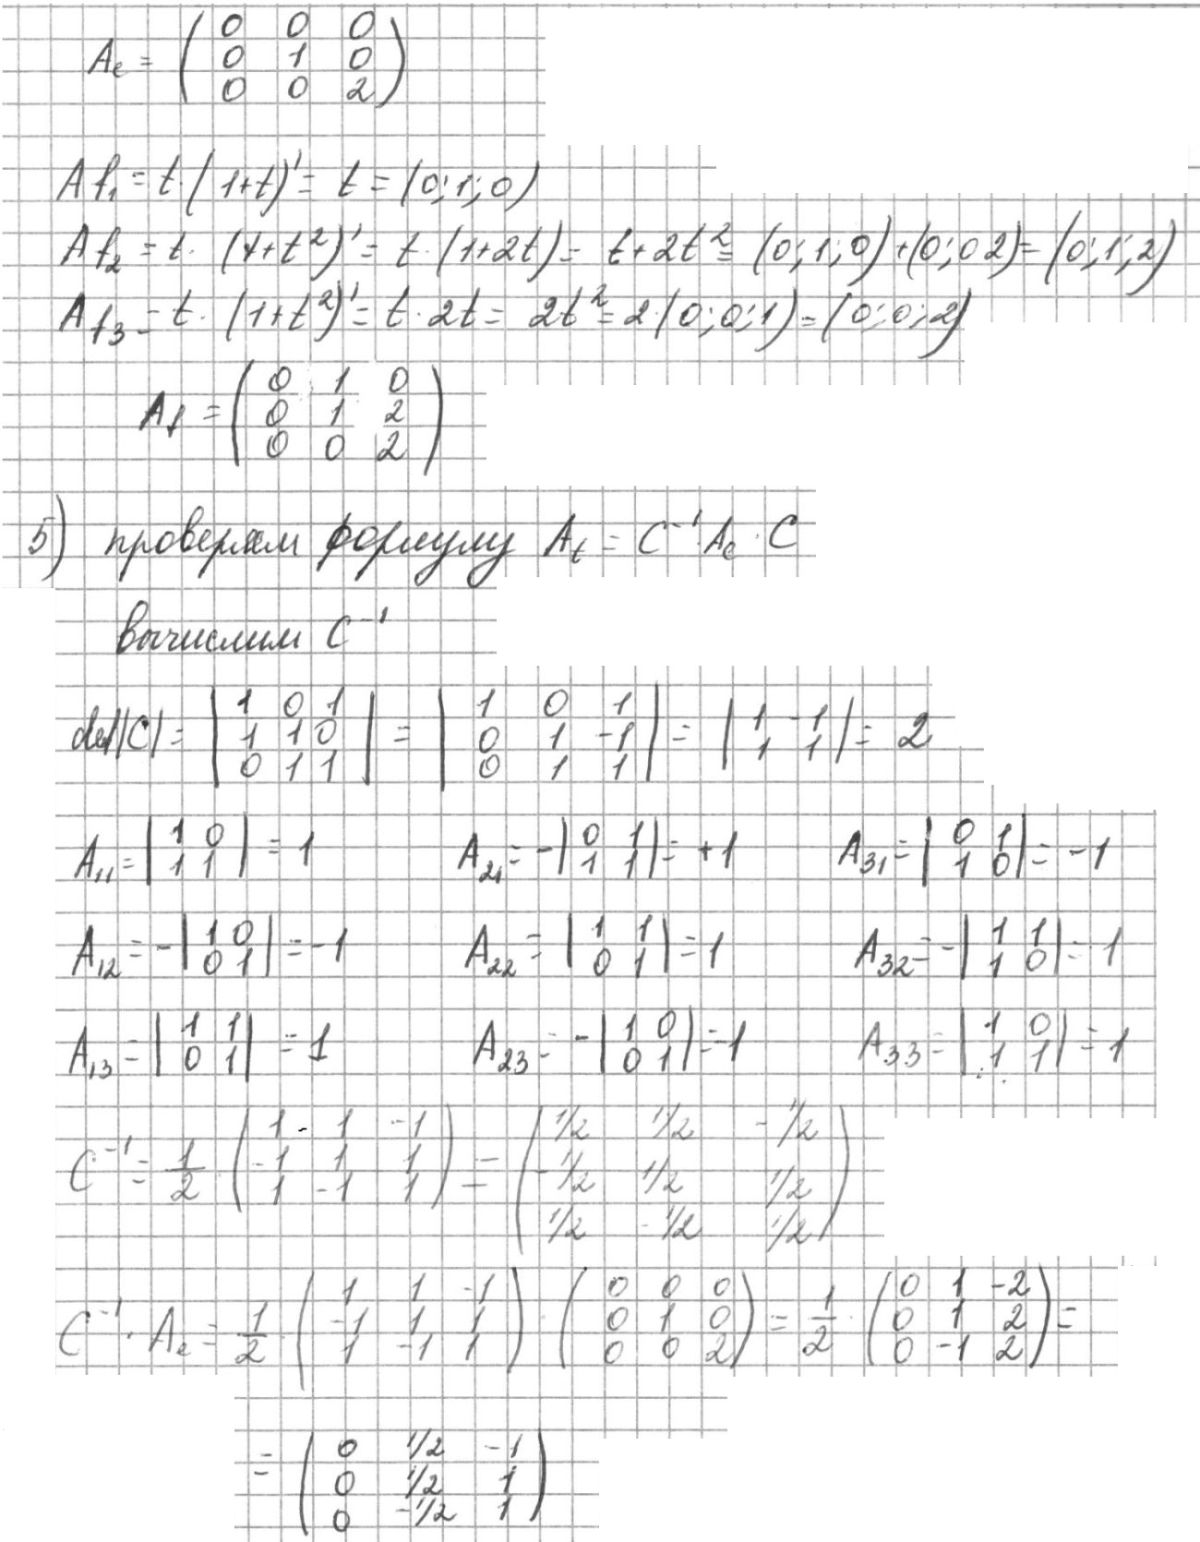 Ae = ( 0 0 0
0 1 0
0 0 2 )
Af₁ = t·(1+t)' = t = (0; 1; 0)
Af₂ = t·(t+t²)' = t·(1+2t) = t+2t² = (0; 1; 0)+(0; 0 2) = (0; 1; 2)
Af₃ = t·(1+t²)' = t·2t = 2t² = 2·(0; 0; 1) = (0; 0; 2)
Af = ( 0 1 0
0 1 2
0 0 2 )
5) проверяем формулу Af = C⁻¹·Ae·C
вычислим C⁻¹
det|C| = | 1 0 1 | = | 1 0 1 | = | 1 -1 | = 2
| 1 1 0 | | 0 1 -1 | | 1 1 |
| 0 1 1 | | 0 1 1 |
A₁₁ = | 1 0 | = 1 A₂₁ = -| 0 1 | = +1 A₃₁ = | 0 1 | = -1
| 1 1 | | 1 1 | | 1 0 |
A₁₂ = -| 1 0 | = -1 A₂₂ = | 1 1 | = 1 A₃₂ = -| 1 1 | = 1
| 0 1 | | 0 1 | | 1 0 |
A₁₃ = | 1 1 | = 1 A₂₃ = -| 1 0 | = -1 A₃₃ = | 1 0 | = 1
| 0 1 | | 0 1 | | 1 1 |
C⁻¹ = 1/2 ( 1 1 -1 ) = ( 1/2 1/2 -1/2 )
( -1 1 1 ) ( -1/2 1/2 1/2 )
( 1 -1 1 ) ( 1/2 -1/2 1/2 )
C⁻¹·Ae = 1/2·( 1 1 -1 )·( 0 0 0 ) = 1/2·( 0 1 -2 ) =
( -1 1 1 ) ( 0 1 0 ) ( 0 1 2 )
( 1 -1 1 ) ( 0 0 2 ) ( 0 -1 2 )
= ( 0 1/2 -1 )
( 0 1/2 1 )
( 0 -1/2 1 )